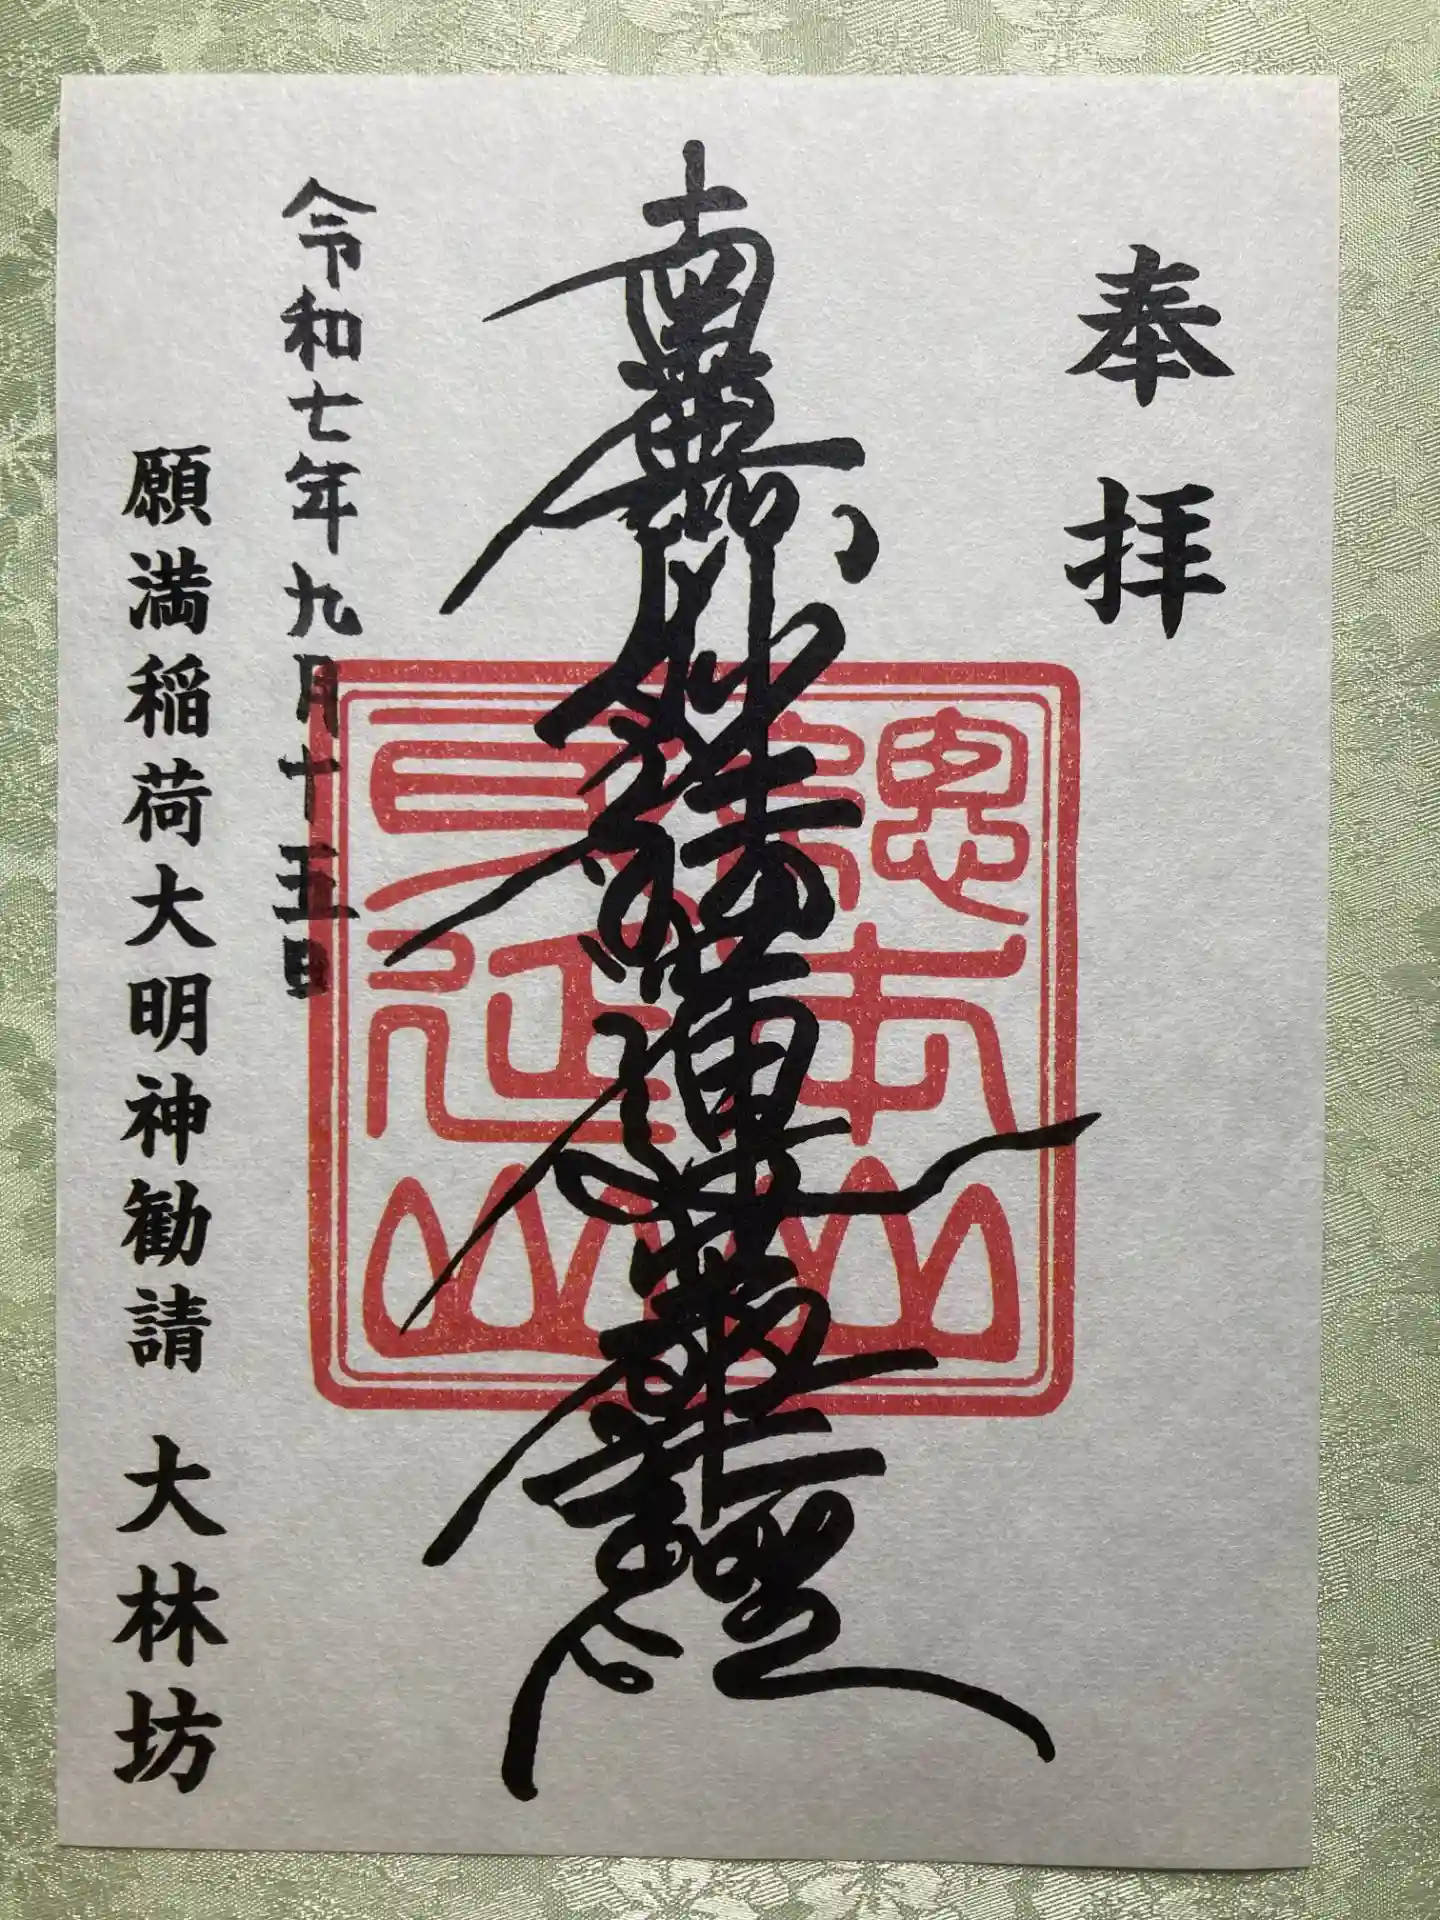 奉拝
南無妙法蓮華経
令和七年九月十五日
願満稲荷大明神勧請 大林坊